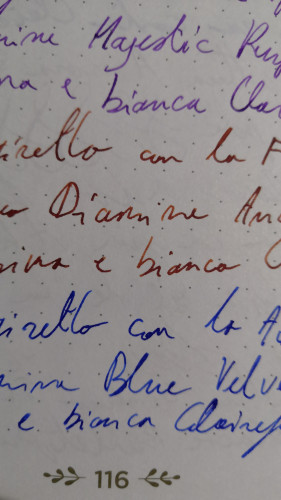 mine Majestic Pur
na e bianca Clai
iretto con la F
o Diamine An
ina e bianca C
iretto con la Au
mina Blue Velv
e bianca Clairef
116